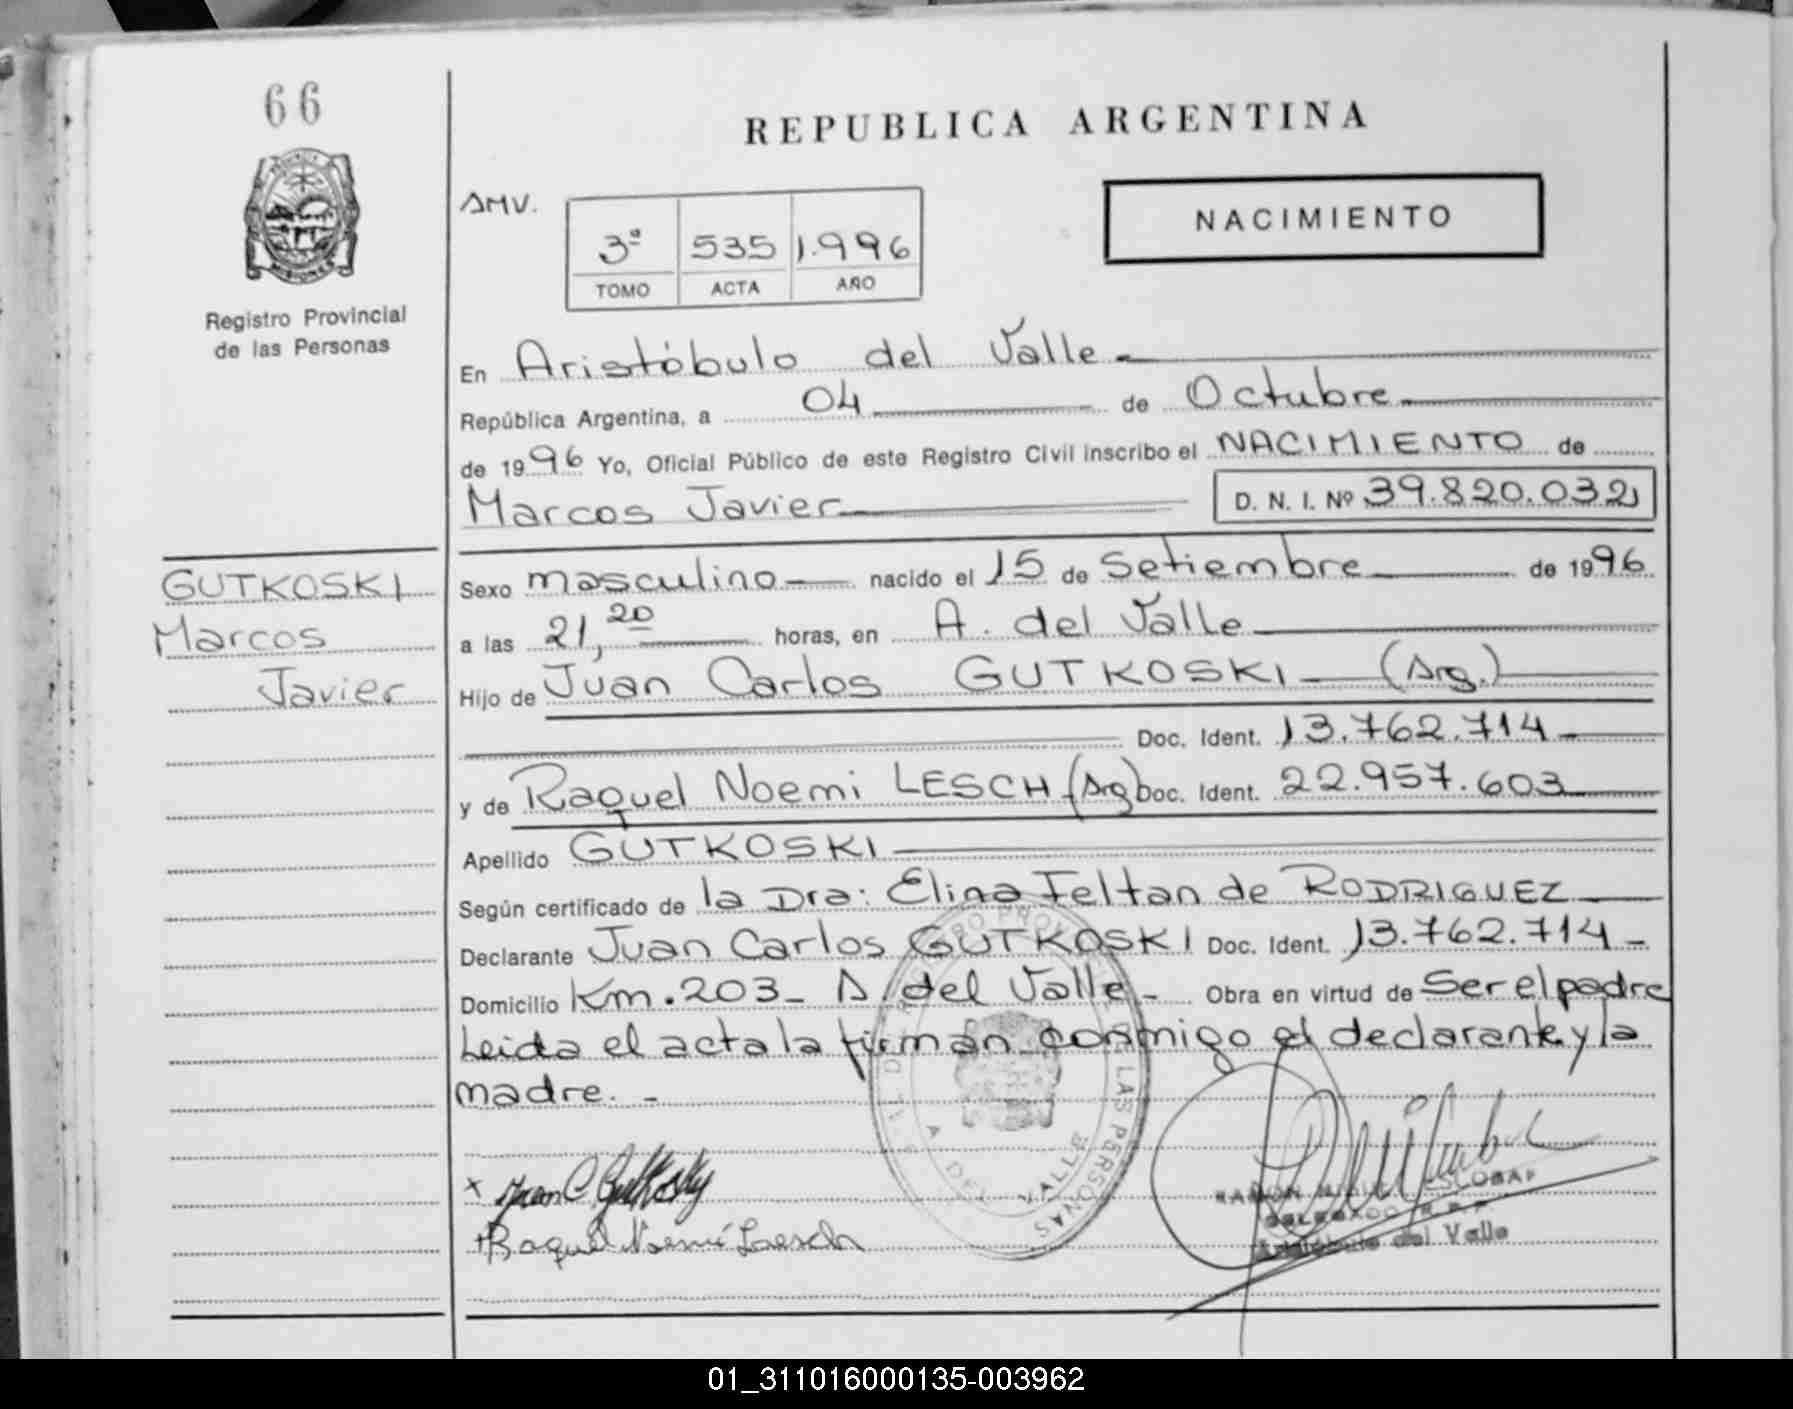 66
REPUBLICA ARGENTINA
AMV.
3ª 535 1.996
TOMO ACTA AÑO
NACIMIENTO
Registro Provincial
de las Personas
En Aristóbulo del Valle.-
República Argentina, a 04 de Octubre
de 1996 Yo, Oficial Público de este Registro Civil inscribo el NACIMIENTO de
Marcos Javier D. N. I. Nº 39.820.032
GUTKOSKI
Marcos
Javier
Sexo masculino nacido el 15 de Setiembre de 1996
a las 21,20 horas, en A. del Valle
Hijo de Juan Carlos GUTKOSKI (Arg.)
Doc. Ident. 13.762.714
y de Raquel Noemi LESCH (Arg) Doc. Ident. 22.957.603
Apellido GUTKOSKI
Según certificado de la Dra: Elina Feltan de RODRIGUEZ
Declarante Juan Carlos GUTKOSKI Doc. Ident. 13.762.714 -
Domicilio Km. 203- A. del Valle - Obra en virtud de Ser el padre
Leida el acta la firman conmigo el declarante y la
madre. -
x Juan C Gutkosky
Raquel Noemí Laesch
LAS PERSONAS
A. DEL VALLE
RAMON MIGUEL ESCOBAR
DELEGADO R.P.P.
Aristóbulo del Valle
01_311016000135-003962